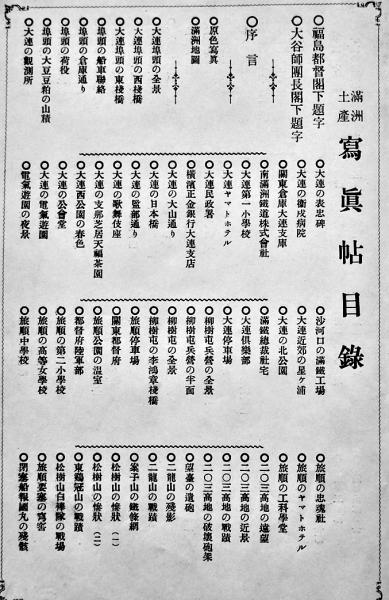 満洲土産 寫眞帖目錄
○福島都督閣下題字
○大谷師團長閣下題字
○序言
○原色寫眞
○滿洲地圖
○大連埠頭の全景
○大連埠頭の西棧橋
○大連埠頭の東棧橋
○埠頭の船車聯絡
○埠頭の倉庫通り
○埠頭の荷役
○埠頭の大豆豆粕の山積
○大連の觀測所
○大連の表忠碑
○大連の衛戍病院
○關東倉庫大連支庫
○南滿洲鐵道株式會社
○大連第一小學校
○大連ヤマトホテル
○大連民政署
○橫濱正金銀行大連支店
○大連の大山通り
○大連の日本橋
○大連の監部通り
○大連の歌舞伎座
○大連の支那芝居天福茶園
○大連西公園の春色
○大連の公會堂
○大連の電氣遊園
○電氣遊園の夜景
○沙河口の滿鐵工場
○大連近郊の星ヶ浦
○大連の北公園
○滿鐵總裁社宅
○大連俱樂部
○大連停車場
○柳樹屯兵營の全景
○柳樹屯兵營の半面
○柳樹屯の全景
○柳樹屯の李鴻章棧橋
○旅順停車場
○關東都督府
○旅順公園の溫室
○都督府陸軍部
○旅順の第二小學校
○旅順の高等女學校
○旅順中學校
○旅順の忠魂社
○旅順のヤマトホテル
○旅順の工科學堂
○二〇三高地の遠望
○二〇三高地の近景
○二〇三高地の戰蹟
○二〇三高地の破壞砲架
○望臺の遺砲
○二龍山の殘影
○二龍山の戰蹟
○案子山の鐵條網
○松樹山の慘狀(一)
○松樹山の慘狀(二)
○東鷄冠山の戰蹟
○松樹山白襷隊の戰場
○旅順要塞の窩窖
○閉塞船報國丸の殘骸